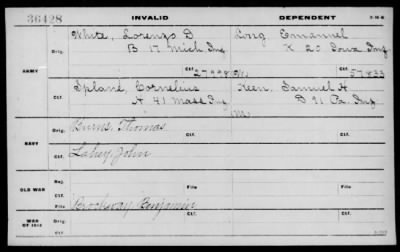 36428 INVALID DEPENDENT
White, Lorenzo D. Long Emanuel
Orig. B 17 Mich Inf K 20 Iowa Inf
ARMY
Ctf. Ctf. 57833
Splane, Cornelius Keen Samuel H
Orig. A 41 Mass Inf D 91 Pa. Inf
Ctf.
Burns, Thomas
Orig.
NAVY
Lahey, John
Ctf.
Rej. File
OLD WAR
Ctf. File
Brockway Benjamin
Orig. Ctf.
WAR OF 1812
Ctf.